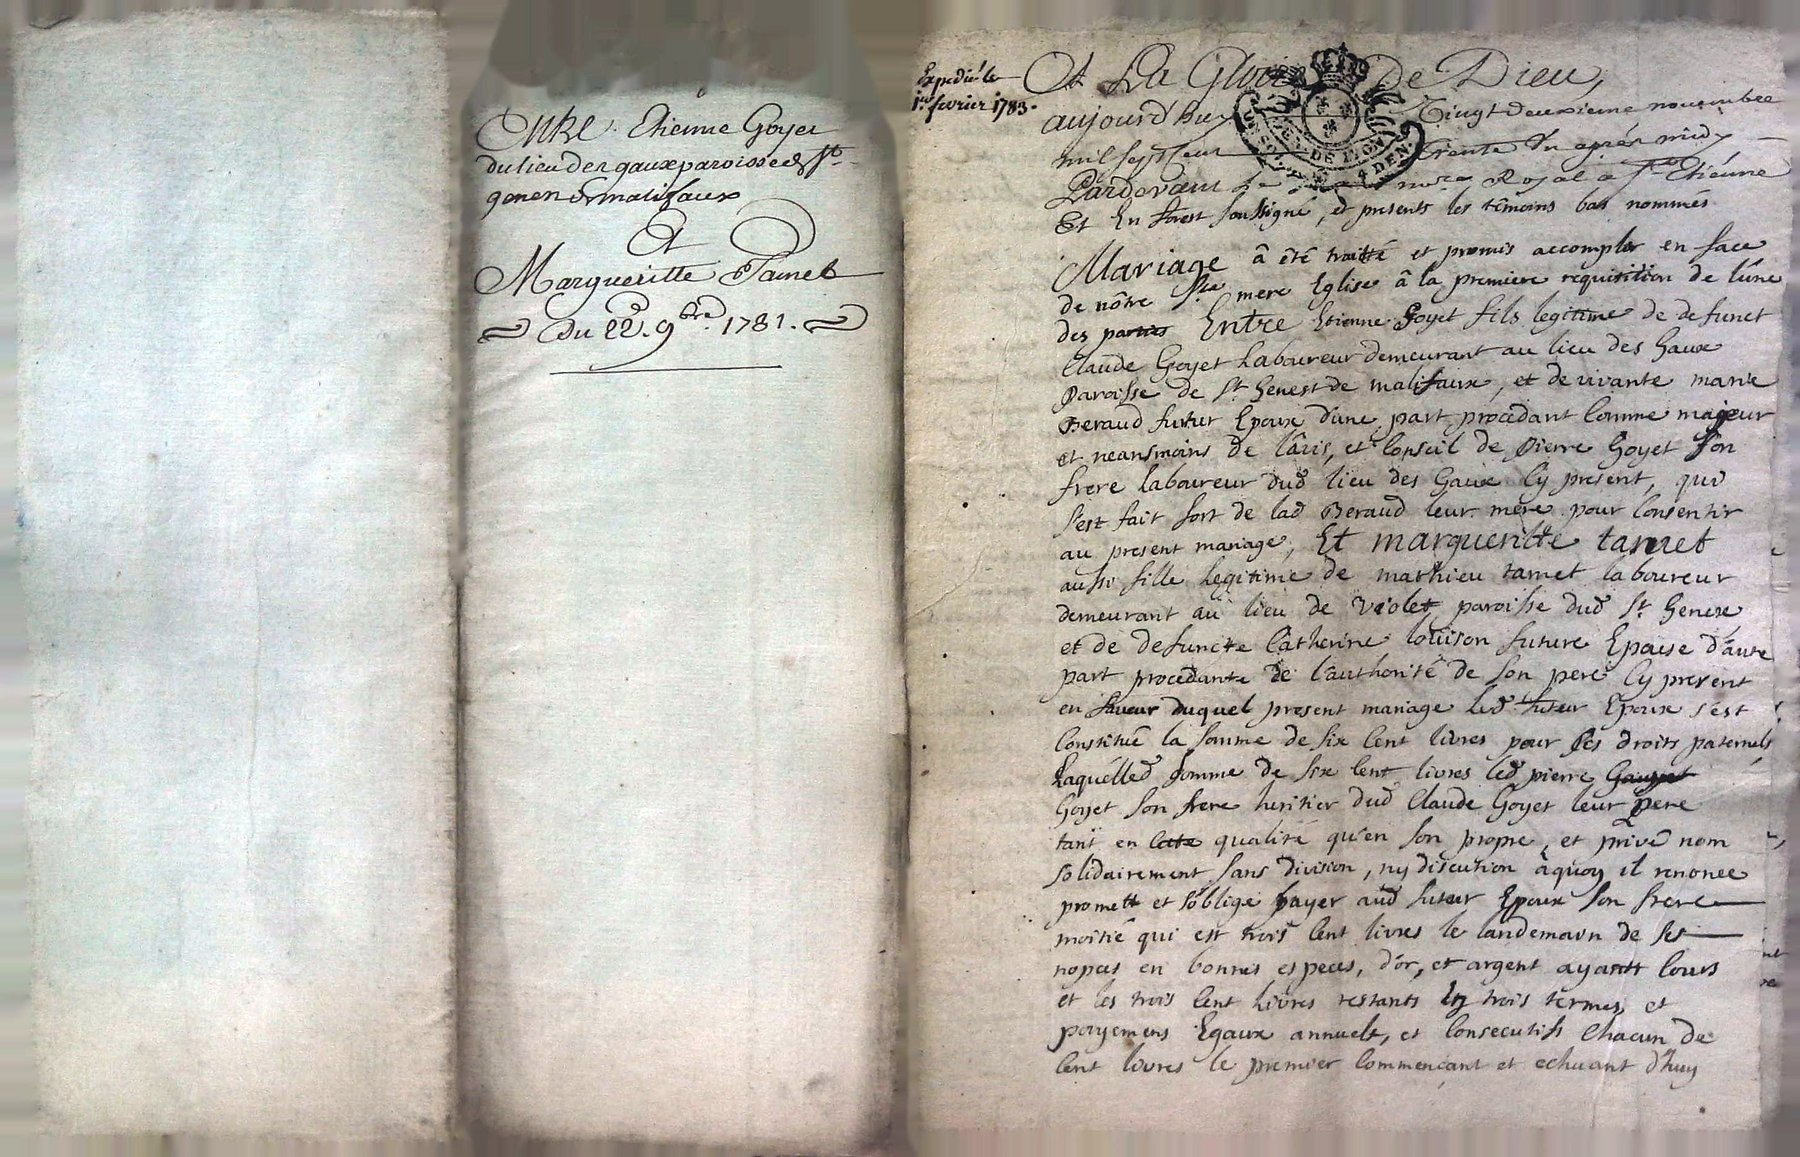 Entre Etienne Goyet
du lieu des gaux paroisse de St
genen de malifaux
Et
Margueritte Tamet
Du 22. 9bre. 1781.
Expedié le
1er fevrier 1783.
A La Gloire De Dieu,
aujourd'huy Vingt deuxieme novembre
mil sept cent trente Un aprés midy
Pardevant le nore Royal a St Etiénne
Et En forest soussigné, et presents les témoins bas nommés
Mariage â êté traitté et promis accomplir en face
de nôtre Ste mere Eglise â la premiere requisition de lúne
des parties Entre Etienne Goyet fils legitime de defunct
Claude Goyet Laboureur demeurant au lieu des Gaux
Paroisse de St Genest de malifaux, et de vivante marie
Beraud futur Epoux d'une part procédant comme majeur
et neansmoins de l'âvis, et Conseil de Pierre Goyet son
frere laboureur dud lieu des Gaux Cy present, qui
s'est fait fort de lad Beraud leur mere pour Consentir
au present mariage, Et margueritte tamet
aussi fille legitime de mathieu tamet laboureur
demeurant au lieu de Violet paroisse dud St Genese
et de defuncte Catherine louison future Epouse d'áutre
part procédante de l'authorité de son pere Cy present
en faveur duquel present mariage led futur Epoux s'est
Constitué la somme de six Cent livres pour ses droits paternels
Laquélled somme de six Cent livres led pierre
Goyet son frere heritier dud Claude Goyet leur pere
tant en cette qualité qu'en son propre, et privé nom
solidairement sans division, ny discution âquoy il renonce
promett et s'oblige payer aud futur Epoux son frere
moitié qui est trois Cent livres le landemain de ses
nopces en bonnes especes, d'or, et argent ayantt Cours
et les trois Cent Livres restants En trois termes et
payemens Egaux annuels, et Consecutifs Chacun de
Cent livres le premier Commençant et echeant d'huy